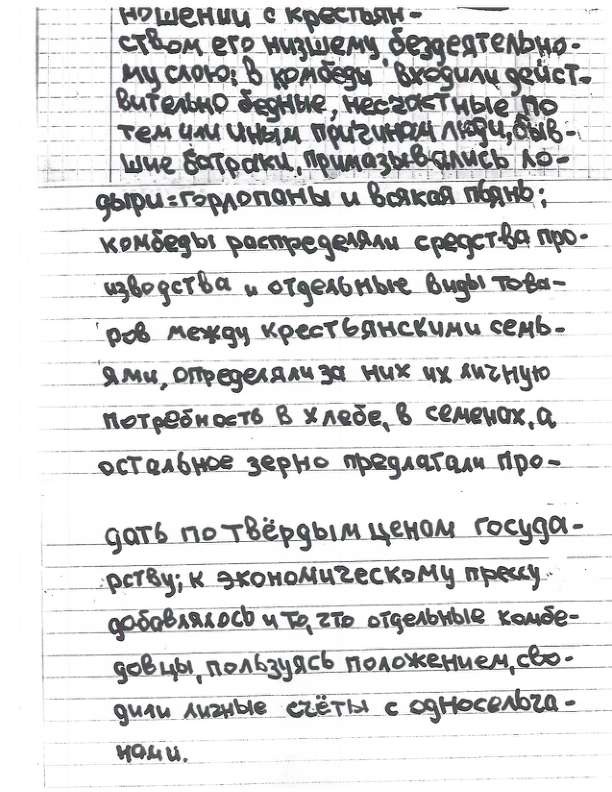 ношении с крестьян-
ством его низшему, бездеятельно-
му слою; в комбеды входили дейст-
вительно бедные, несчастные по
тем или иным причинам люди, быв-
шие батраки, примазывались ло-
дыри=горлопаны и всякая пьянь;
комбеды распределяли средства про-
изводства и отдельные виды това-
ров между крестьянскими семь-
ями, определяли за них их личную
потребность в хлебе, в семенах, а
остальное зерно предлагали про-
дать по твёрдым ценам госуда-
рству; к экономическому прессу
добавлялось и то, что отдельные комбе-
довцы, пользуясь положением, сво-
дили личные счёты с односельча-
нами.